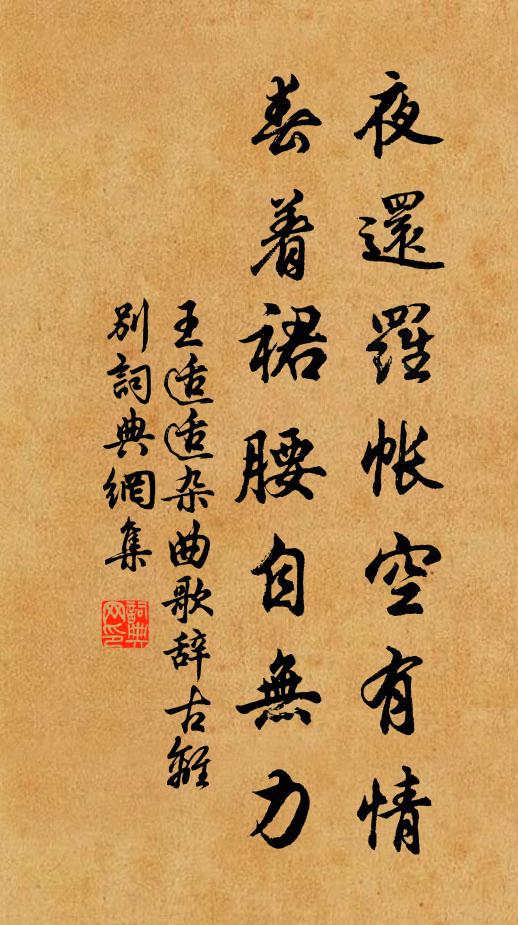 夜還羅帳空有情
春着裙腰自無力
王适适杂曲歌辞古離
別詞典網集
詞典网印